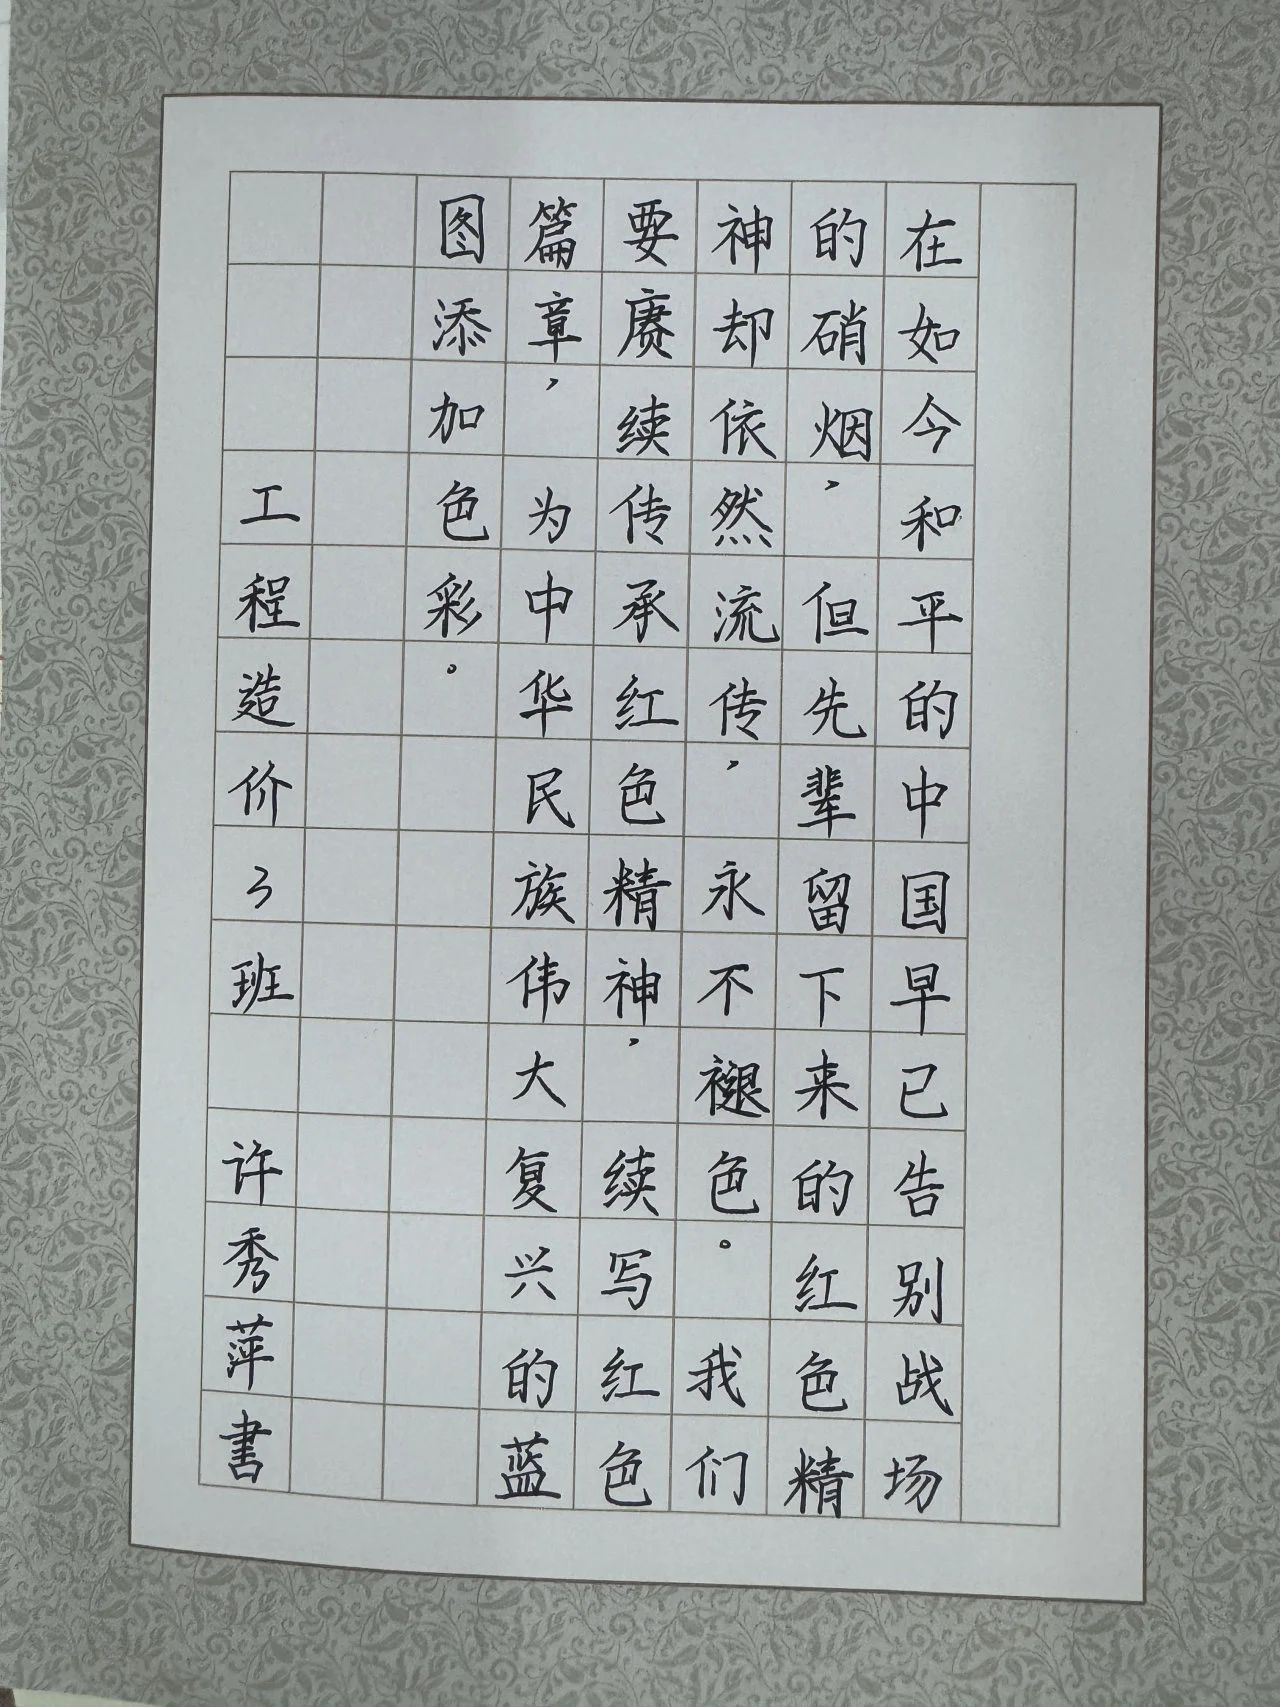 在如今和平的中国早已告别战场
的硝烟，但先辈留下来的红色精
神却依然流传，永不褪色。我们
要赓续传承红色精神，续写红色
篇章，为中华民族伟大复兴的蓝
图添加色彩。
工程造价3班 许秀萍書